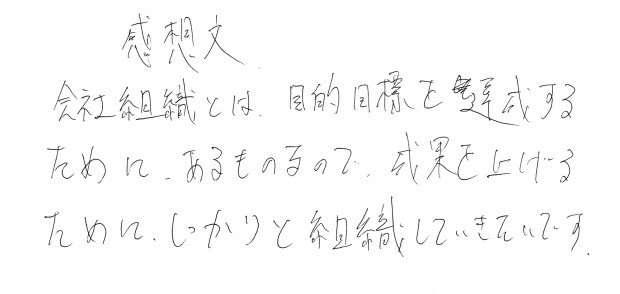 感想文
会社組織とは、目的目標を達成する
ために、あるものるので、成果を上げる
ために、しっかりと組織していきたいです。